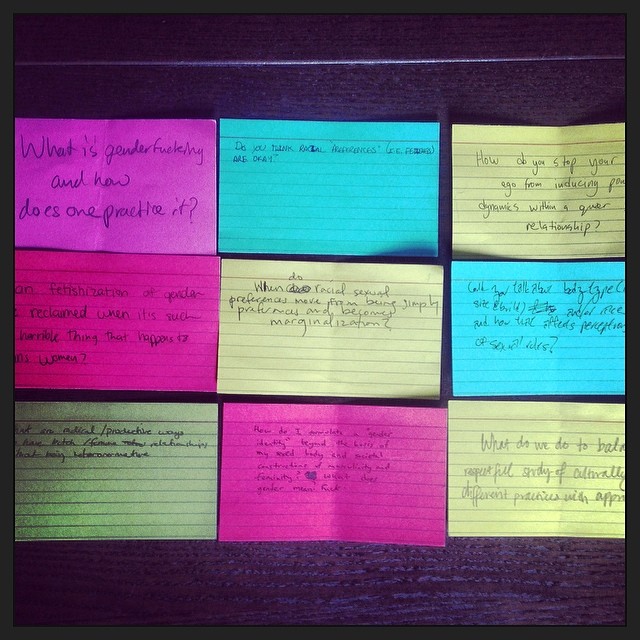 What is genderfucking
and how
does one practice it?
DO YOU THINK RACIAL PREFERENCES" (I.E. FETISHES)
ARE OKAY?
How do you stop your
ego from inducing pow
dynamics within a queer
relationship?
an fetishization of gender
reclaimed when it's such
horrible thing that happens to
women?
do
When racial sexual
preferences move from being simply
preferences and becomes
marginalization?
you talk about body type(
size & build) and/or race
and how that affects perception
of sexual roles?
radical/productive ways
have butch/femme relationships
being heteronormative
How do I annotate a "gender
identity" beyond the basis of
my sexed body and societal
constructions of masculinity and
femininity? What does
gender mean?
What do we do to bala
respectful study of culturally
different practices with appro